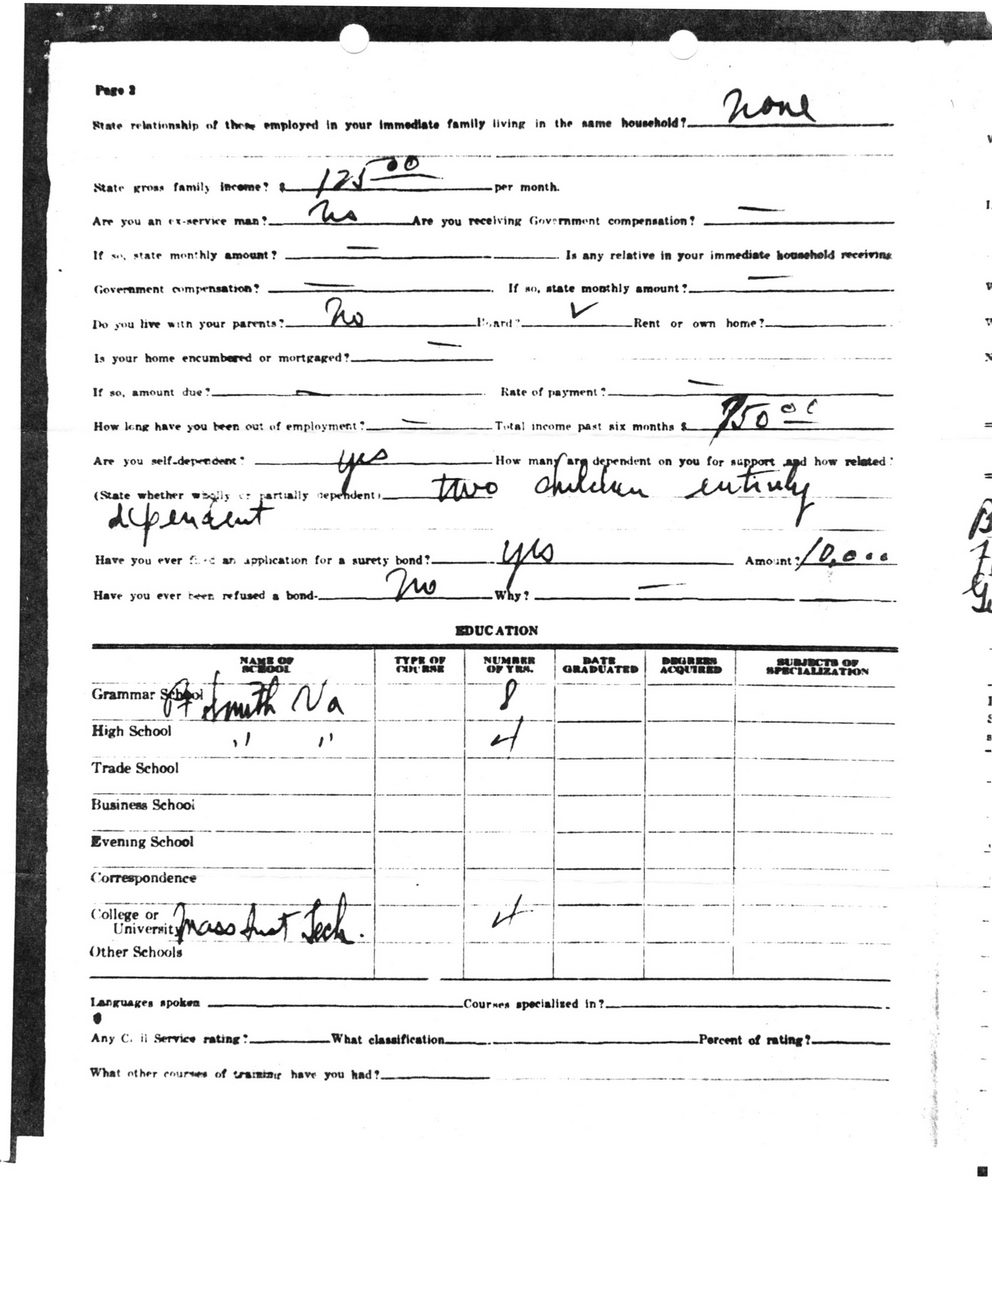 Page 2
State relationship of those employed in your immediate family living in the same household? None
State gross family income? $ 125 00 per month.
Are you an ex-service man? No Are you receiving Government compensation? —
If so, state monthly amount? — Is any relative in your immediate household receiving
Government compensation? — If so, state monthly amount? —
Do you live with your parents? No Board? ✓ Rent or own home?
Is your home encumbered or mortgaged? —
If so, amount due? — Rate of payment? —
How long have you been out of employment? — Total income past six months $ 750 00
Are you self-dependent? yes How many are dependent on you for support and how related?
(State whether wholly or partially dependent) two children entirely
dependent
Have you ever filed an application for a surety bond? yes Amount? 10,000
Have you ever been refused a bond- No Why? —
EDUCATION
NAME OF SCHOOL TYPE OF COURSE NUMBER OF YRS. DATE GRADUATED DEGREES ACQUIRED SUBJECTS OF SPECIALIZATION
Grammar School Ft Smith Va 8
High School " " 4
Trade School
Business School
Evening School
Correspondence
College or
University Mass Inst Tech. 4
Other Schools
Languages spoken Courses specialized in?
Any Civil Service rating? What classification Percent of rating?
What other courses of training have you had?